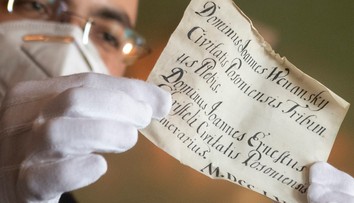 Dominus Joannes Wenansky
Civitatis Posoniensis Tribun
us Plebis.
Dominus Joannes Ernestus
Civitatis Posoniensis
merarius.